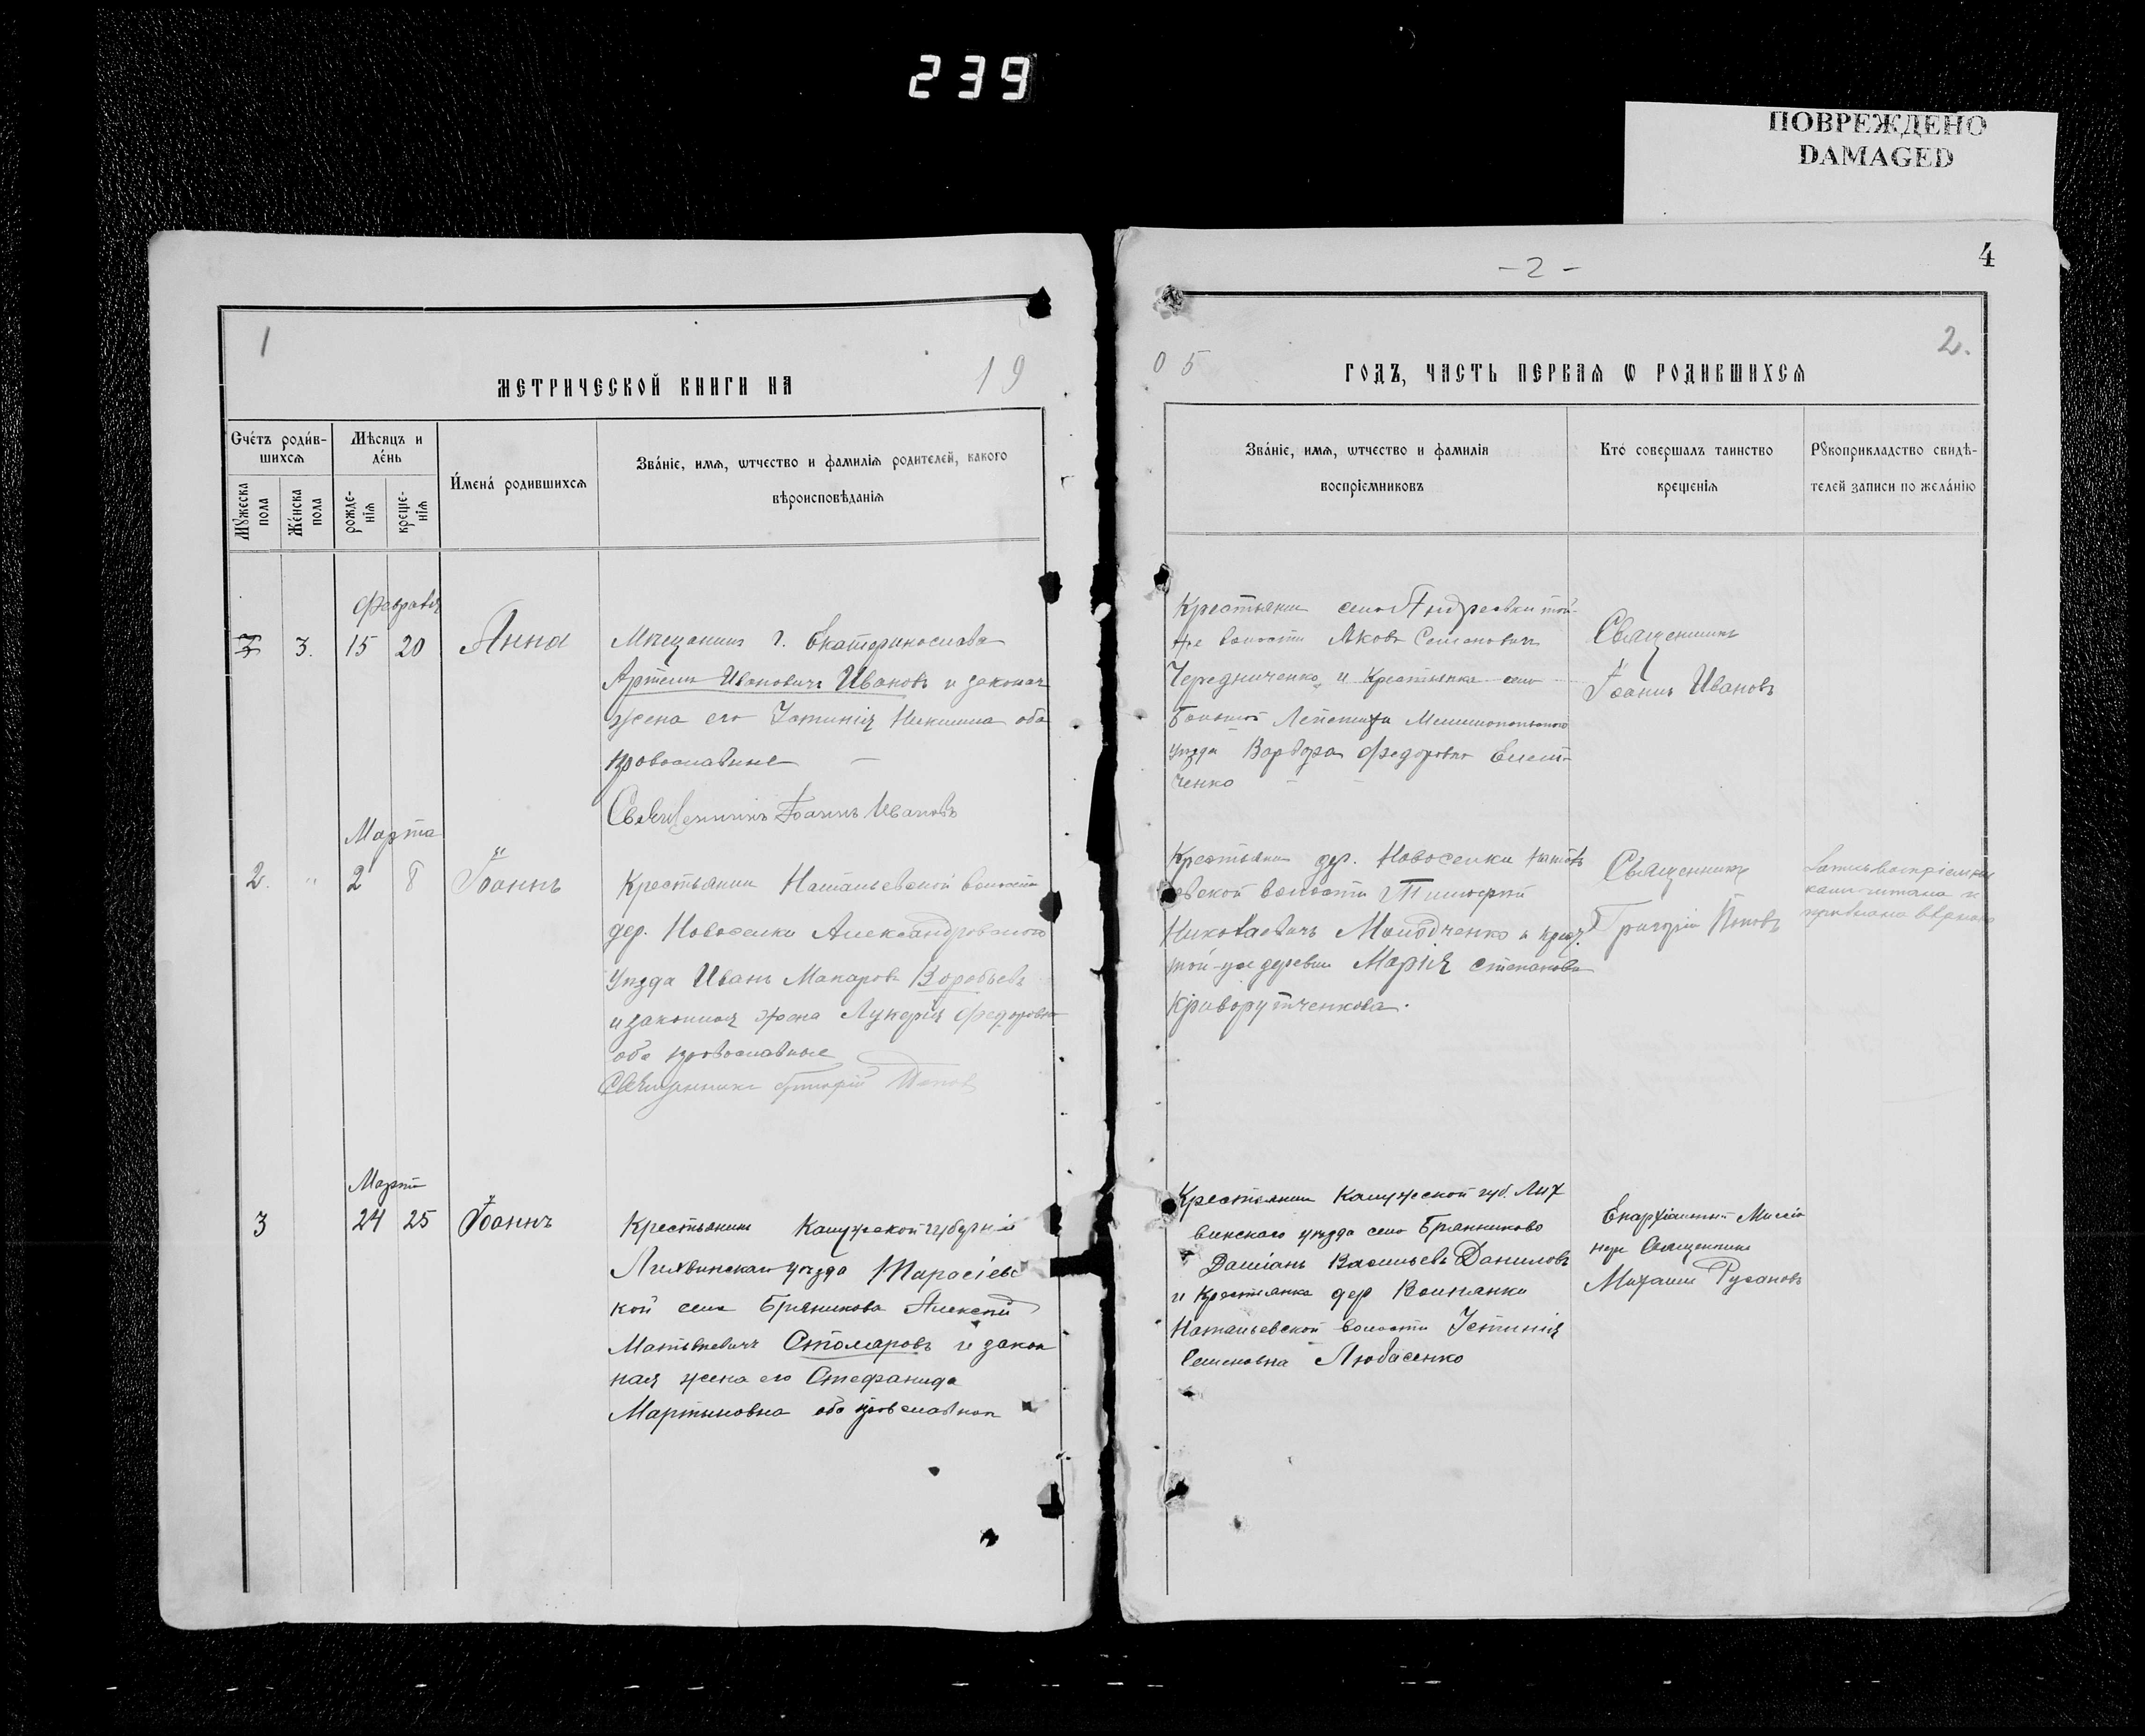 239
ПОВРЕЖДЕНО
DAMAGED
1
МЕТРИЧЕСКОЙ КНИГИ НА
19
Счétъ роди́в-
шихсѧ
Мѣсяцъ и
де́нь
Мꙋжеска
пола
Же́нска
пола
рожде-
нїѧ
креще-
нїѧ
И́мена́ родившихсѧ
Зва́нїе, имѧ, ѿтчество и фамилїѧ родителей, какого
вѣроисповѣданїѧ
Февраля
3. 15 20 Анна
Мѣщанинъ г. Екатеринослава
Артемъ Ивановичъ Ивановъ и законая
жена его Устинія Никитина оба
православные
Священникъ Іоаннъ Ивановъ
Марта
2. " 2 8 Іоаннъ
Крестьянин Натальевской волости
дер. Новоселки Александровскаго
уѣзда Иванъ Макаровъ Воробьевъ
и законная жена Лукерія Федоровна
оба православные
Священникъ Григорій Поповъ
Март
3 24 25 Іоаннъ
Крестьянинъ Калужской губерніи
Лихвинскаго уѣзда Тарасіевс
кой села Бряниково Алексѣй
Матвѣевичъ Столяровъ и закон
ная жена его Стефанида
Мартыновна оба православнаго
- 2 -
4
05
2.
ГОДЪ, ЧАСТЬ ПЕРВАѦ Ѡ РОДИВШИХСѦ
Зва́нїе, имѧ, ѿтчество и фамилїѧ
воспрїемниковъ
Кто́ совершалъ таинство
крещенїѧ
Рꙋкоприкладство свидѣ-
телей записи по жела́нїю
Крестьянин села Андреевки той-
же волости Яковъ Семеновичъ
Чередниченко и Крестьянка села
Большой Лепетихи Мелитопольскаго
уѣзда Варвара Федоровна
ченко
Священникъ
Іоаннъ Ивановъ
Крестьянин дер. Новоселки Наталь
евской волости Тимофей
Николаевичъ Молодченко и крест.
той-же деревни Марія Степанова
Криворутченкова.
Священникъ
Григорій Поповъ
Крестьянин Калужской губ. Лих
винскаго уѣзда села Бряниково
Даміанъ Васильевъ Даниловъ
и Крестьянка дер
Натальевской волости Устинія
Семеновна Любасенко
Епархіальный Миссіо
неръ Священникъ
Михаилъ Русановъ